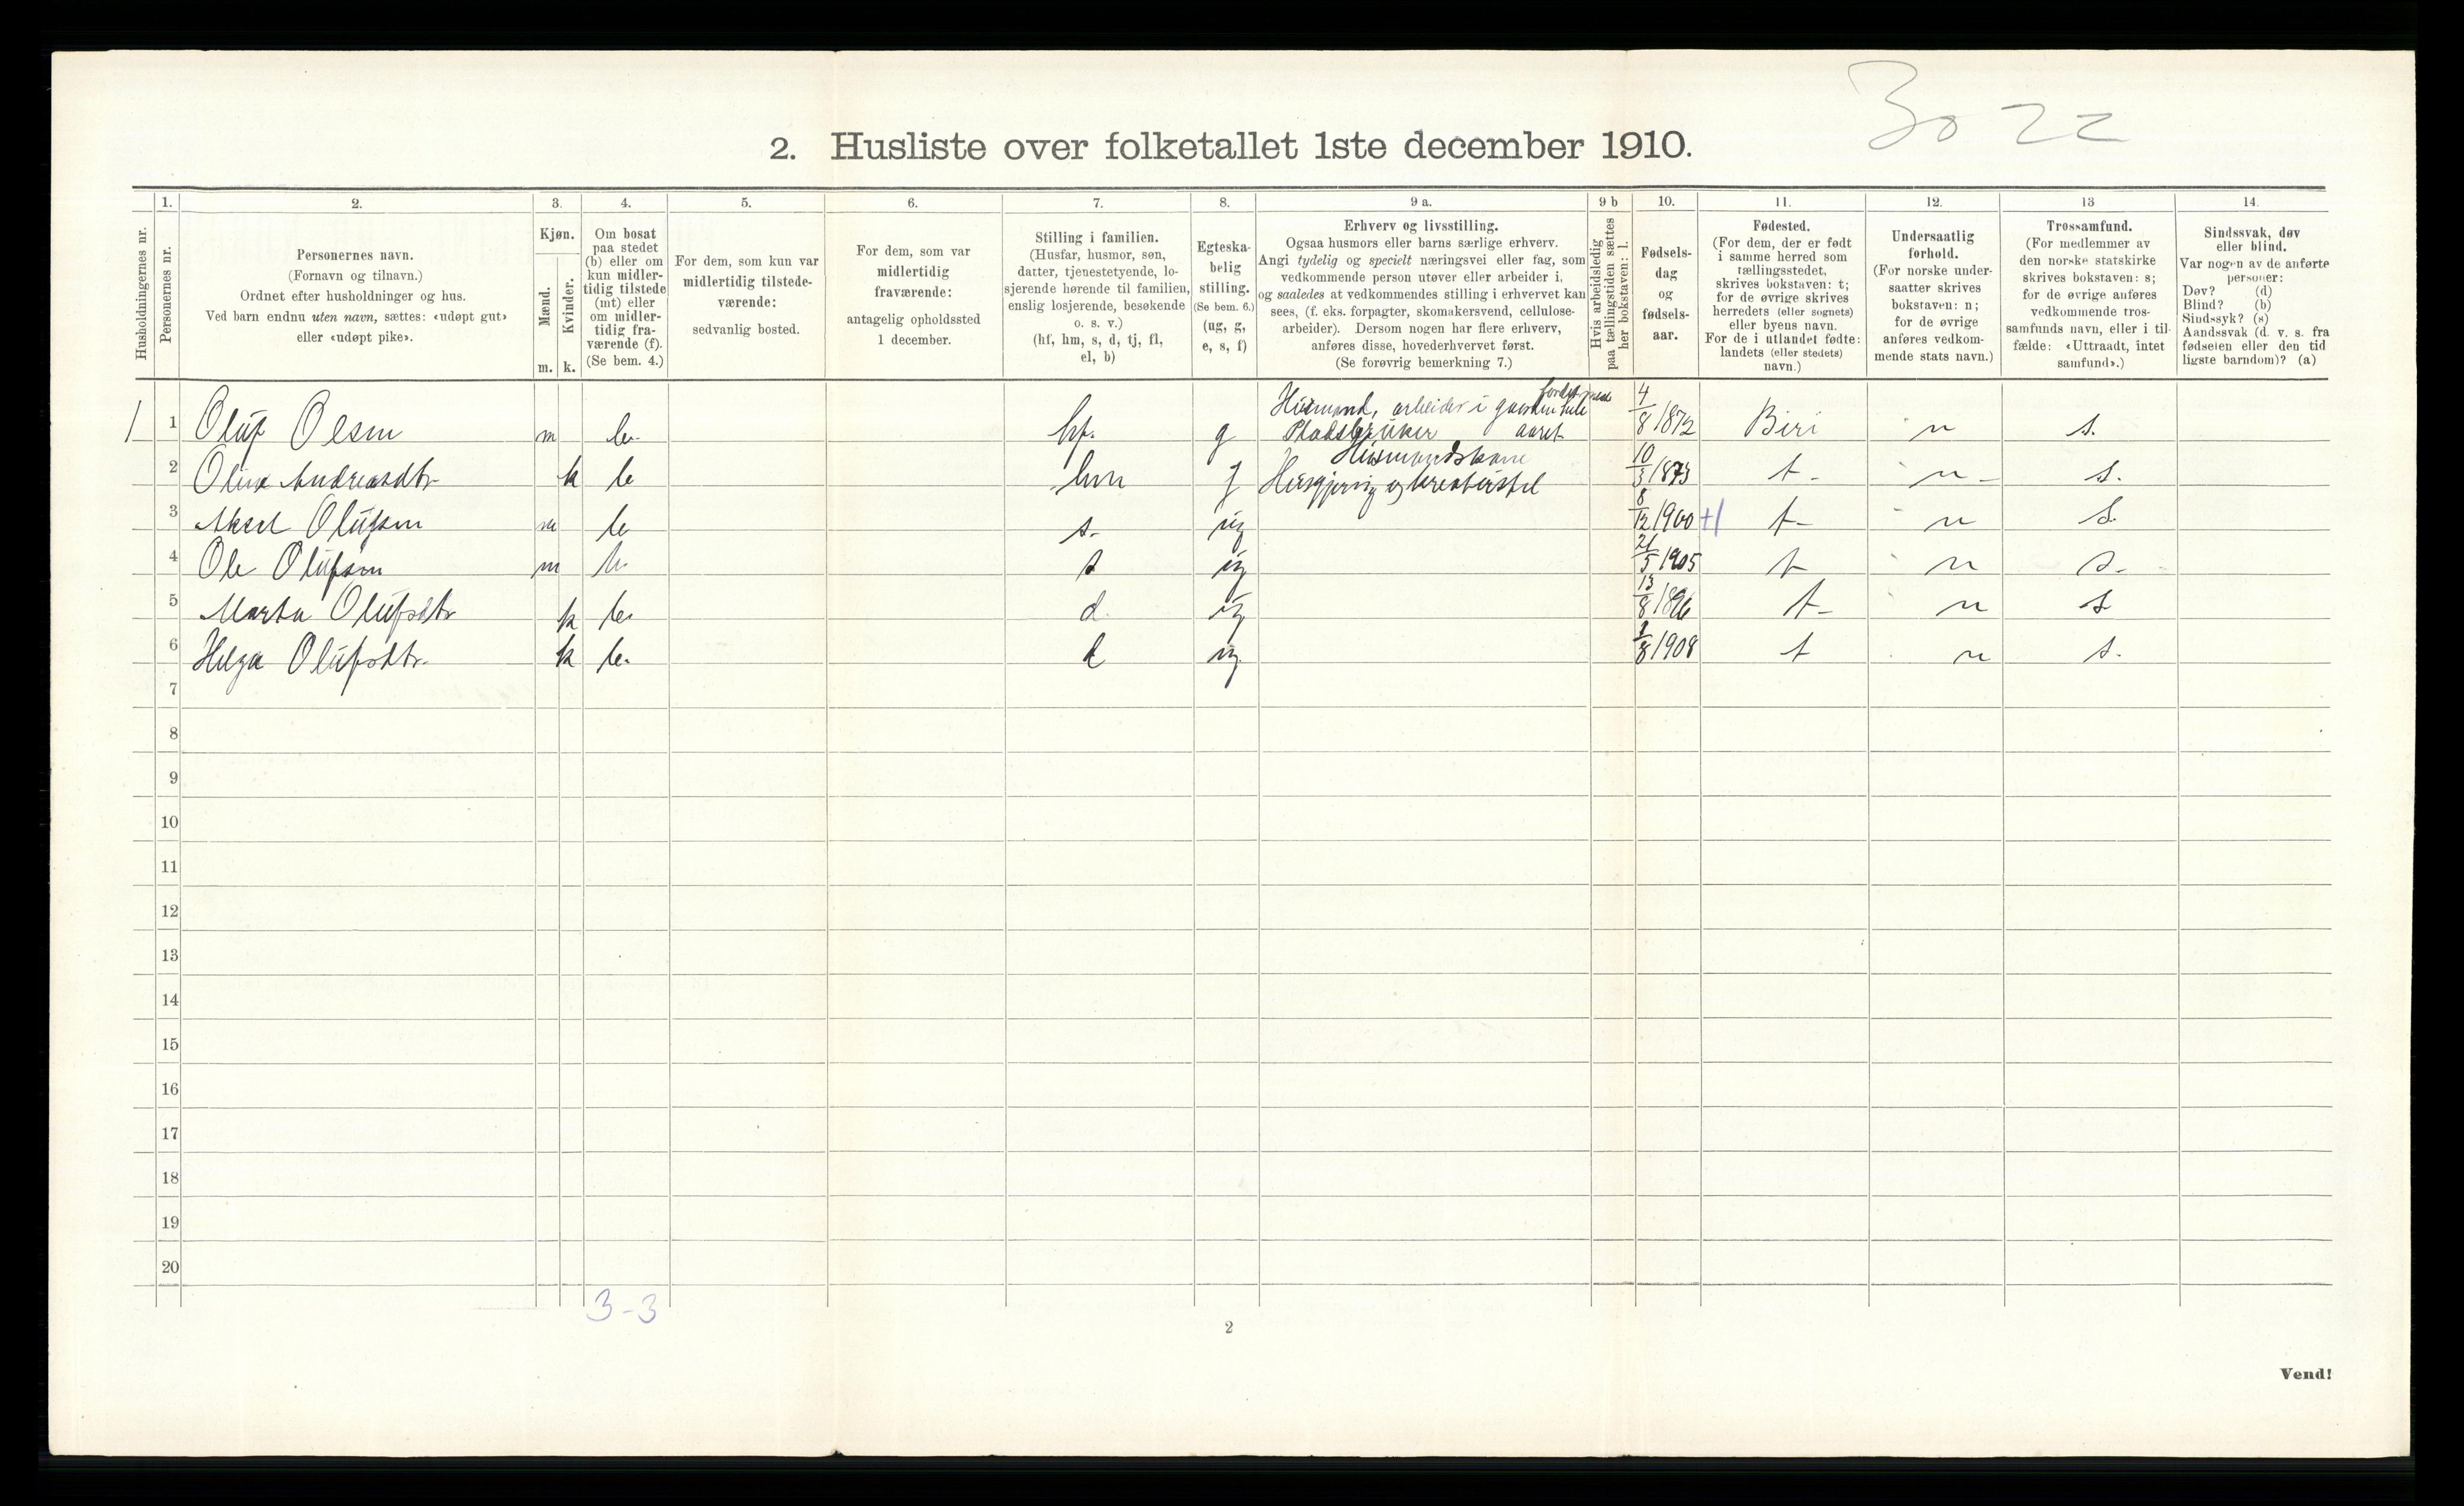 30 22
2. Husliste over folketallet 1ste december 1910.
Husholdningernes nr.
1.
Personernes nr.
2.
Personernes navn.
(Fornavn og tilnavn.)
Ordnet efter husholdninger og hus.
Ved barn endnu uten navn, sættes: «udøpt gut»
eller «udøpt pike».
3.
Kjøn.
Mænd.
Kvinder.
m. k.
4.
Om bosat
paa stedet
(b) eller om
kun midler-
tidig tilstede
(mt) eller
om midler-
tidig fra-
værende (f).
(Se bem. 4.)
5.
For dem, som kun var
midlertidig tilstede-
værende:
sedvanlig bosted.
6.
For dem, som var
midlertidig
fraværende:
antagelig opholdssted
1 december.
7.
Stilling i familien.
(Husfar, husmor, søn,
datter, tjenestetyende, lo-
sjerende hørende til familien,
enslig losjerende, besøkende
o. s. v.)
(hf, hm, s, d, tj, fl,
el, b)
8.
Egteska-
belig
stilling.
(Se bem. 6.)
(ug, g,
e, s, f)
9 a.
Erhverv og livsstilling.
Ogsaa husmors eller barns særlige erhverv.
Angi tydelig og specielt næringsvei eller fag, som
vedkommende person utøver eller arbeider i,
og saaledes at vedkommendes stilling i erhvervet kan
sees, (f. eks. forpagter, skomakersvend, cellulose-
arbeider). Dersom nogen har flere erhverv,
anføres disse, hovederhvervet først.
(Se forøvrig bemerkning 7.)
9 b
Hvis arbeidsledig
paa tællingstiden sættes
her bokstaven: l.
10.
Fødsels-
dag
og
fødsels-
aar.
11.
Fødested.
(For dem, der er født
i samme herred som
tællingsstedet,
skrives bokstaven: t;
for de øvrige skrives
herredets (eller sognets)
eller byens navn.
For de i utlandet fødte:
landets (eller stedets)
navn.)
12.
Undersaatlig
forhold.
(For norske under-
saatter skrives
bokstaven: n;
for de øvrige
anføres vedkom-
mende stats navn.)
13
Trossamfund.
(For medlemmer av
den norske statskirke
skrives bokstaven: s;
for de øvrige anføres
vedkommende tros-
samfunds navn, eller i til-
fælde: «Uttraadt, intet
samfund».)
14.
Sindssvak, døv
eller blind.
Var nogen av de anførte
personer:
Døv? (d)
Blind? (b)
Sindssyk? (s)
Aandssvak (d. v. s. fra
fødselen eller den tid
ligste barndom)? (a)
1 1 Oluf Olsen m b. hf. g Husmand, arbeider i gaarden hele aaret Pladsbruker 4/8 1872 Biri n s.
2 Oline Andreasdtr k b hm g Husmandskone Husgjerning og kreaturstel 10/3 1873 t n s.
3 Aksel Olufsen m b s. ug 8/12 1900 +1 t n s.
4 Ole Olufsen m b. s ug 21/5 1905 t n s.
5 Marta Olufsdtr k b. d. ug 13/8 1896 t n s
6 Helga Olufsdtr. k b. d ug 1/8 1908 t n s.
7
8
9
10
11
12
13
14
15
16
17
18
19
20
3-3
2
Vend!